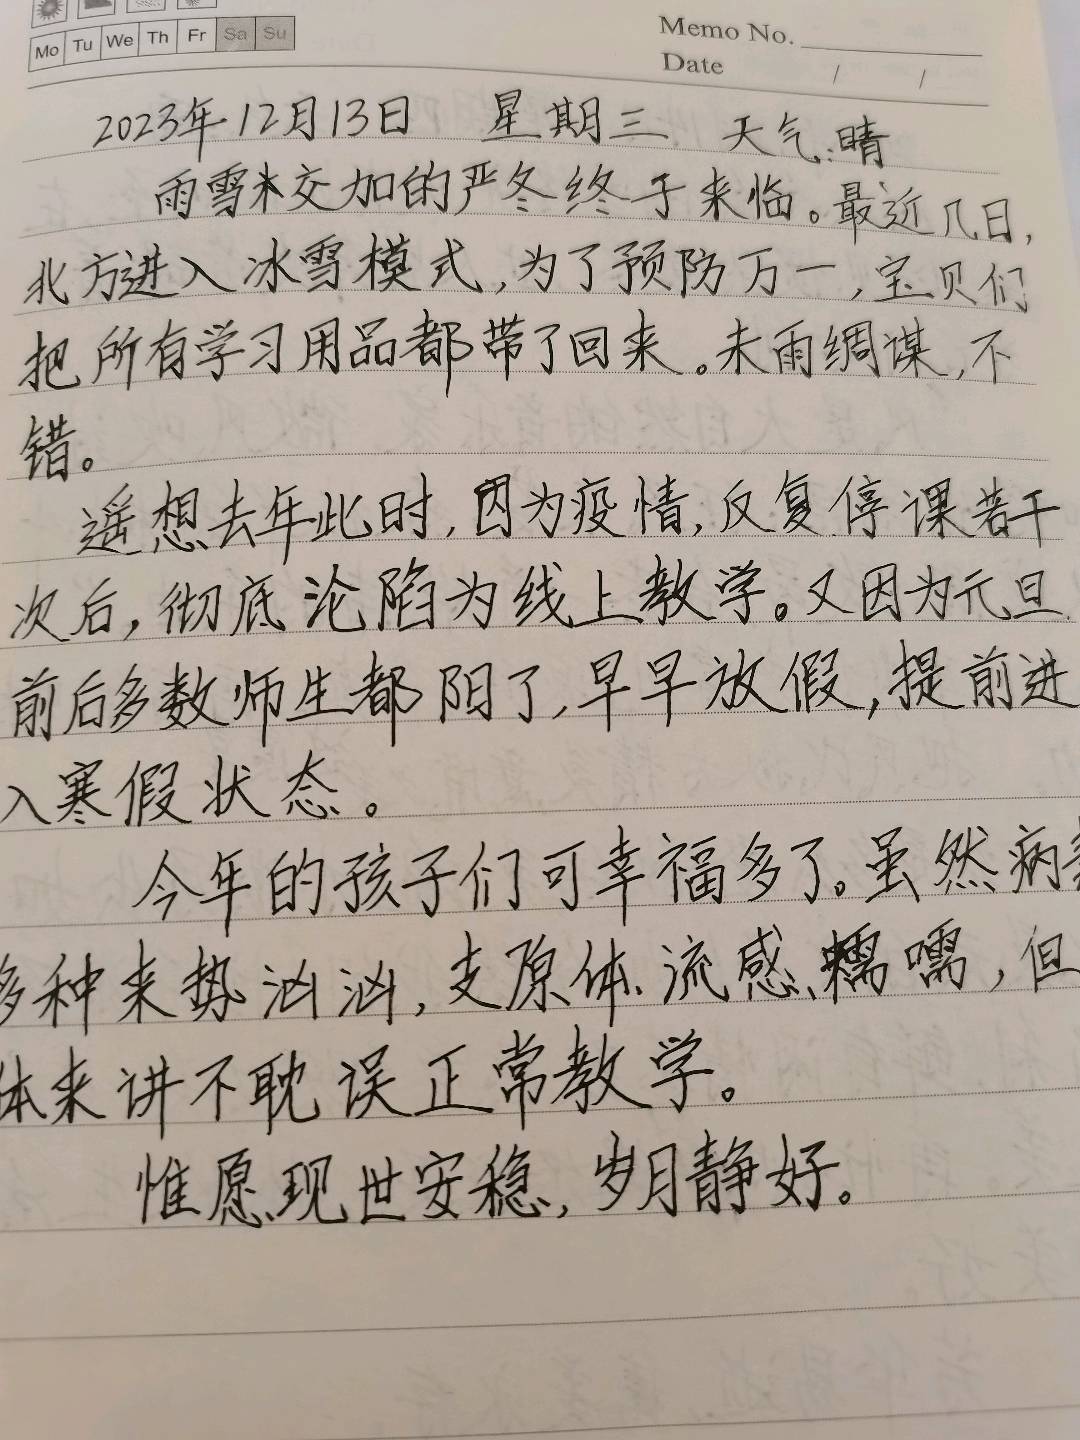 Mo Tu We Th Fr Sa Su
Memo No.
Date / /
2023年12月13日 星期三 天气:晴
雨雪交加的严冬终于来临。最近几日,
北方进入冰雪模式,为了预防万一,宝贝们
把所有学习用品都带了回来。未雨绸谋,不
错。
遥想去年此时,因为疫情,反复停课若干
次后,彻底沦陷为线上教学。又因为元旦
前后多数师生都阳了,早早放假,提前进
入寒假状态。
今年的孩子们可幸福多了。虽然病
多种来势汹汹,支原体、流感、嚅,但
体来讲不耽误正常教学。
惟愿现世安稳,岁月静好。